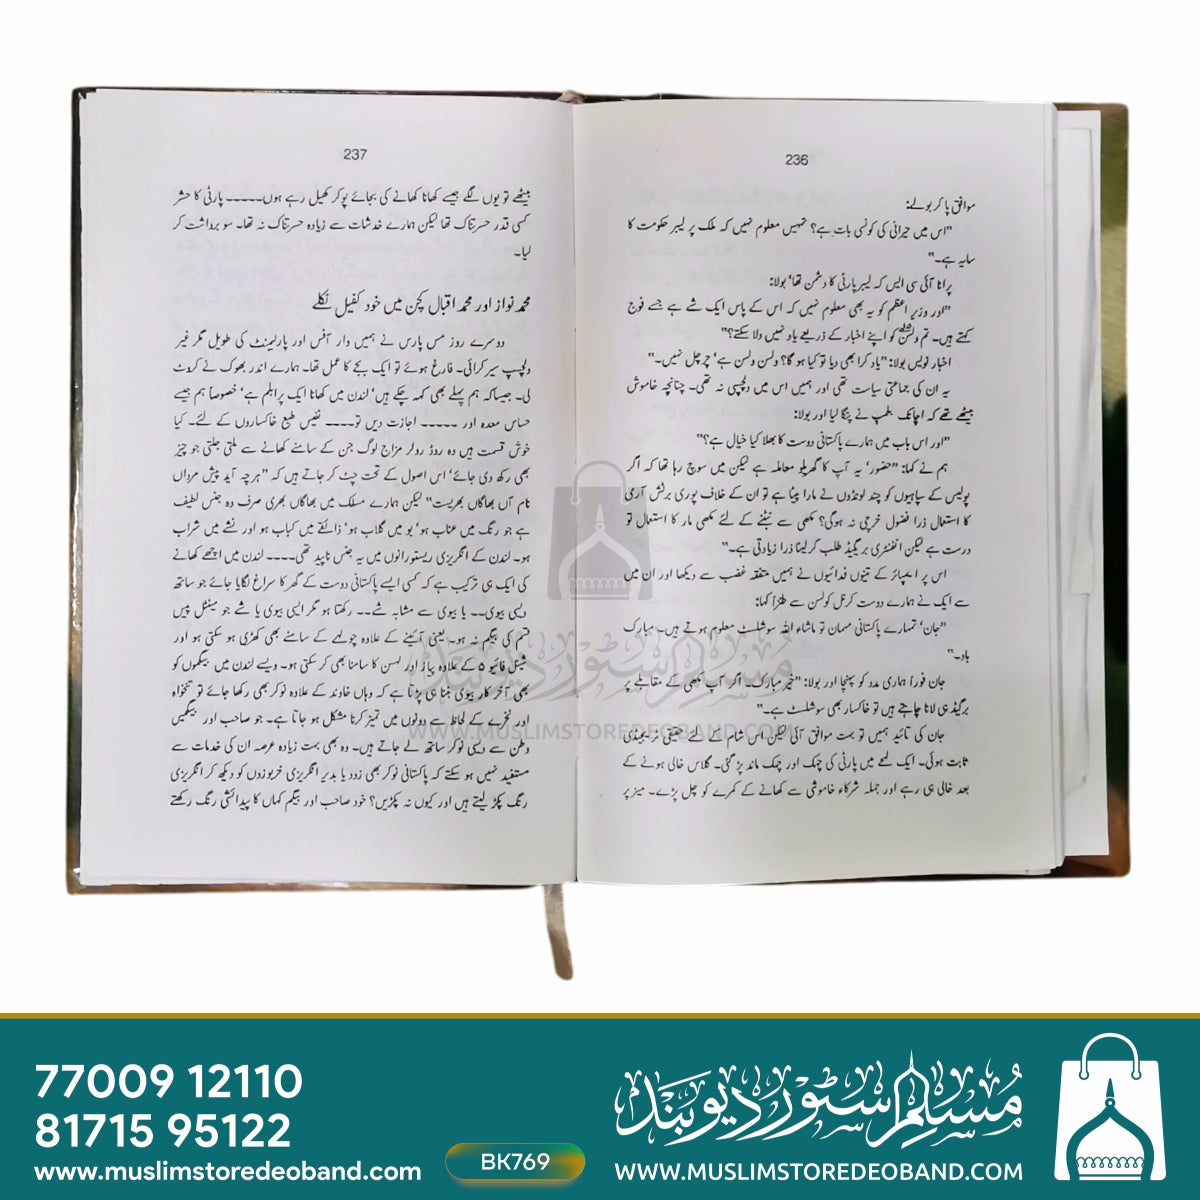 236
موافق پا کر بولے:
"اس میں حیرانی کی کونسی بات ہے؟ تمہیں معلوم نہیں کہ ملک پر لیبر حکومت کا
سایہ ہے۔"
پرانا آئی سی ایس کہ لیبر پارٹی کا دشمن تھا' بولا:
"اور وزیر اعظم کو یہ بھی معلوم نہیں کہ اس کے پاس ایک شے ہے جسے فوج
کہتے ہیں۔ تم ولسن کو اپنے اخبار کے ذریعے یاد نہیں دلا سکتے؟"
اخبار نویس بولا: "یاد کرا بھی دیا تو کیا ہو گا؟ ولسن ولسن ہے' چرچل نہیں۔"
یہ ان کی جماعتی سیاست تھی اور ہمیں اس میں دلچسپی نہ تھی۔ چنانچہ خاموش
بیٹھے تھے کہ اچانک بلمپ نے پنگا لیا اور بولا:
"اور اس باب میں ہمارے پاکستانی دوست کا بھلا کیا خیال ہے؟"
ہم نے کہا: "حضور' یہ آپ کا گھریلو معاملہ ہے لیکن میں سوچ رہا تھا کہ اگر
پولیس کے سپاہیوں کو چند لونڈوں نے مارا پیٹا ہے تو ان کے خلاف پوری برٹش آرمی
کا استعمال ذرا فضول خرچی نہ ہوگی؟ مکھی سے نپٹنے کے لئے مکھی مار کا استعمال تو
درست ہے لیکن انفنٹری بریگیڈ طلب کر لینا ذرا زیادتی ہے۔"
اس پر ایمپائر کے تینوں فدائیوں نے ہمیں متفقہ غضب سے دیکھا اور ان میں
سے ایک نے ہمارے دوست کرنل کولسن سے طنزاً کہا:
"جان' تمہارے پاکستانی مہمان تو ماشاء اللہ سوشلسٹ معلوم ہوتے ہیں۔ مبارک
باد۔"
جان فوراً ہماری مدد کو پہنچا اور بولا: "خیر مبارک۔ اگر آپ مکھی کے مقابلے پر
برگیڈ ہی لانا چاہتے ہیں تو خاکسار بھی سوشلسٹ ہے۔"
جان کی تائید ہمیں تو بہت موافق آئی لیکن اس شام کے لئے حقیقی ٹریجیڈی
ثابت ہوئی۔ ایک لمحے میں پارٹی کی چہک اور چمک ماند پڑ گئی۔ گلاس خالی ہونے کے
بعد خالی ہی رہے اور جملہ شرکاء خاموشی سے کھانے کے کمرے کو چل پڑے۔ میز پر
237
بیٹھے تو یوں لگے جیسے کھانا کھانے کی بجائے پوکر کھیل رہے ہوں۔۔۔۔۔ پارٹی کا حشر
کسی قدر حسرتناک تھا لیکن ہمارے خدشات سے زیادہ حسرتناک نہ تھا۔ سو برداشت کر
لیا۔
محمد نواز اور محمد اقبال کچن میں خود کفیل نکلے
دوسرے روز مس پارس نے ہمیں وار آفس اور پارلیمنٹ کی طویل مگر غیر
دلچسپ سیر کرائی۔ فارغ ہوئے تو ایک بجے کا عمل تھا۔ ہمارے اندر بھوک نے کروٹ
لی۔ جیساکہ ہم پہلے بھی کہہ چکے ہیں' لندن میں کھانا ایک پرابلم ہے' خصوصاً ہم جیسے
حساس معدہ اور ۔۔۔۔۔ اجازت دیں تو۔۔۔۔ نفیس طبع خاکساروں کے لئے۔ کیا
خوش قسمت ہیں وہ روڈ رولر مزاج لوگ جن کے سامنے کھانے سے ملتی جلتی جو چیز
بھی رکھ دی جائے' اس اصول کے تحت چٹ کر جاتے ہیں کہ "ہرچہ آید پیش مرداں
نام آں بھاگاں بھریست" لیکن ہمارے مسلک میں بھاگاں بھری صرف وہ جنس لطیف
ہے جو رنگ میں عناب ہو' بو میں گلاب ہو' ذائقے میں کباب ہو اور نشے میں شراب
ہو۔ لندن کے انگریزی ریستورانوں میں یہ جنس ناپید تھی۔۔۔۔ لندن میں اچھے کھانے
کی ایک ہی ترکیب ہے کہ کسی ایسے پاکستانی دوست کے گھر کا سراغ لگایا جائے جو ساتھ
دیسی بیوی۔۔ یا بیوی سے مشابہ شے۔۔ رکھتا ہو مگر ایسی بیوی یا شے جو مینٹل پیس
قسم کی بیگم نہ ہو۔ یعنی آئینے کے علاوہ چولہے کے سامنے بھی کھڑی ہو سکتی ہو اور
شینل فائیو ۵ کے علاوہ پیاز اور لہسن کا سامنا بھی کر سکتی ہو۔ ویسے لندن میں بیگموں کو
بھی آخر کار بیوی بننا ہی پڑتا ہے کہ وہاں خاوند کے علاوہ نوکر بھی رکھا جائے تو تنخواہ
اور نخرے کے لحاظ سے دونوں میں تمیز کرنا مشکل ہو جاتا ہے۔ جو صاحب اور بیگمیں
وطن سے دیسی نوکر ساتھ لے جاتے ہیں۔ وہ بھی بہت زیادہ عرصہ ان کی خدمات سے
مستفید نہیں ہو سکتے کہ پاکستانی نوکر بھی زود یا بدیر انگریزی خربوزوں کو دیکھ کر انگریزی
رنگ پکڑ لیتے ہیں اور کیوں نہ پکڑیں؟ خود صاحب اور بیگم کہاں کا پیدائشی رنگ رکھتے
مسلم سٹور دیوبند
WWW.MUSLIMSTOREDEOBAND.COM
77009 12110
81715 95122
www.muslimstoredeoband.com
BK769
مسلم سٹور دیوبند
WWW.MUSLIMSTOREDEOBAND.COM